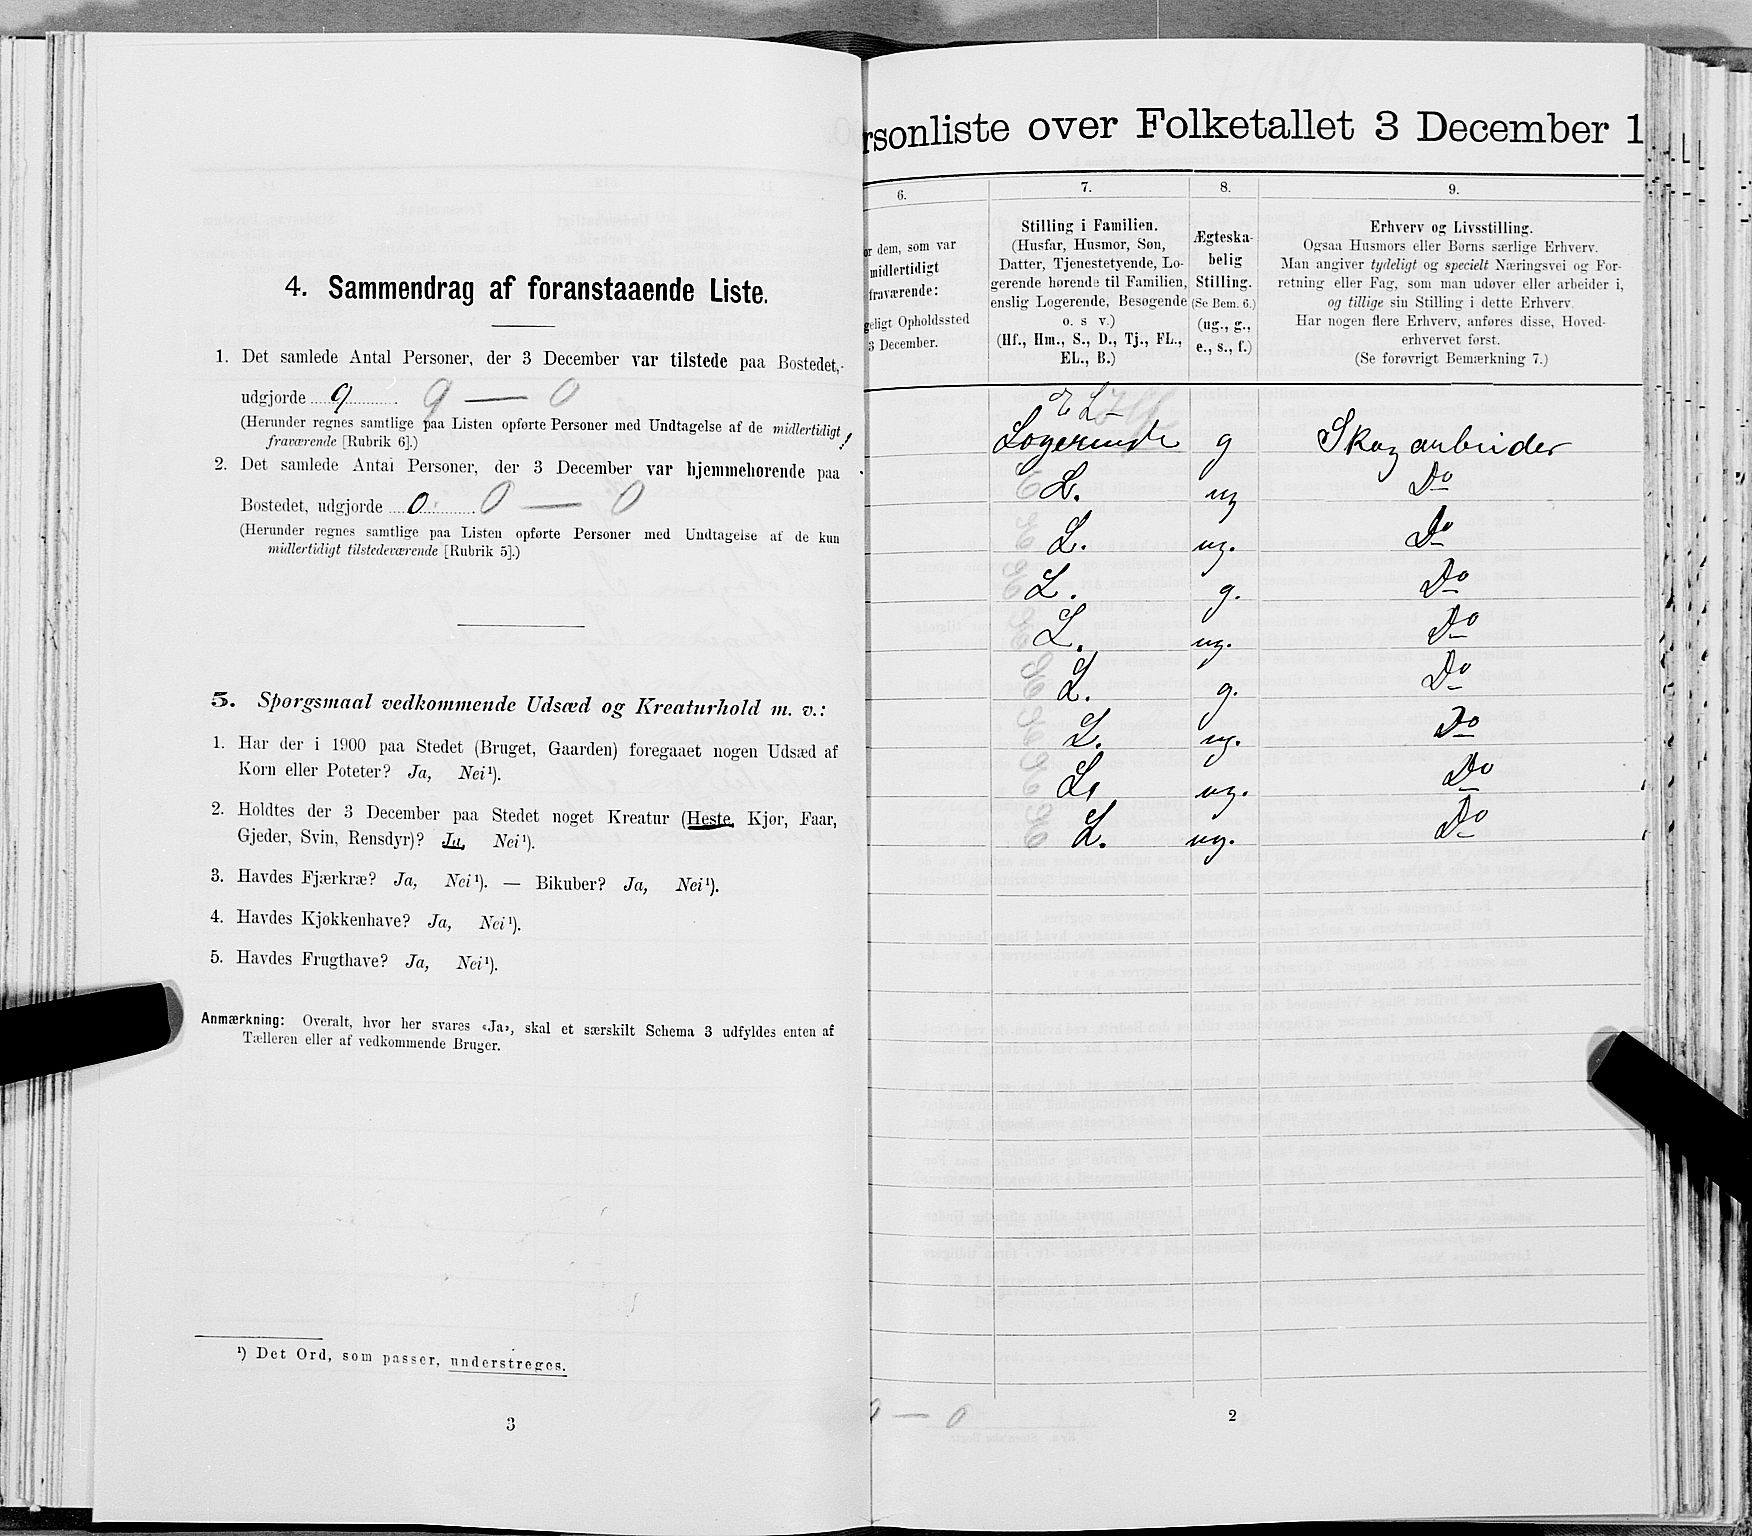 4. Sammendrag af foranstaaende Liste.
1. Det samlede Antal Personer, der 3 December var tilstede paa Bostedet,
udgjorde 9 9 — 0
(Herunder regnes samtlige paa Listen opførte Personer med Undtagelse af de midlertidigt
fraværende [Rubrik 6].)
2. Det samlede Antal Personer, der 3 December var hjemmehørende paa
Bostedet, udgjorde 0 0 — 0
(Herunder regnes samtlige paa Listen opførte Personer med Undtagelse af de kun
midlertidigt tilstedeværende [Rubrik 5].)
5. Spørgsmaal vedkommende Udsæd og Kreaturhold m. v.:
1. Har der i 1900 paa Stedet (Bruget, Gaarden) foregaaet nogen Udsæd af
Korn eller Poteter? Ja, Nei¹).
2. Holdtes der 3 December paa Stedet noget Kreatur (Heste, Kjør, Faar,
Gjeder, Svin, Rensdyr)? Ja, Nei¹).
3. Havdes Fjærkræ? Ja, Nei¹). — Bikuber? Ja, Nei¹).
4. Havdes Kjøkkenhave? Ja, Nei¹).
5. Havdes Frugthave? Ja, Nei¹).
Anmærkning: Overalt, hvor her svares «Ja», skal et særskilt Schema 3 udfyldes enten af
Tælleren eller af vedkommende Bruger.
¹) Det Ord, som passer, understreges.
3
rsonliste over Folketallet 3 December 1
6. 7. 8. 9.
or dem, som var
midlertidigt
fraværende:
geligt Opholdssted
3 December.
Stilling i Familien.
(Husfar, Husmor, Søn,
Datter, Tjenestetyende, Lo-
gerende hørende til Familien,
enslig Logerende, Besøgende
o. s v.)
(Hf., Hm., S., D., Tj., FL.,
EL., B.)
Ægteska-
belig
Stilling.
(Se Bem. 6.)
(ug., g.,
e., s., f.)
Erhverv og Livsstilling.
Ogsaa Husmors eller Børns særlige Erhverv.
Man angiver tydeligt og specielt Næringsvei og For-
retning eller Fag, som man udøver eller arbeider i,
og tillige sin Stilling i dette Erhverv.
Har nogen flere Erhverv, anføres disse, Hoved-
erhvervet først.
(Se forøvrigt Bemærkning 7.)
E L
Logerende g Skogarbeider
L. ug Do
L. ug. Do
L. g. Do
L. ug. Do
L. g. Do
L. ug. Do
L. ug. Do
L. ug. Do
— 0
2